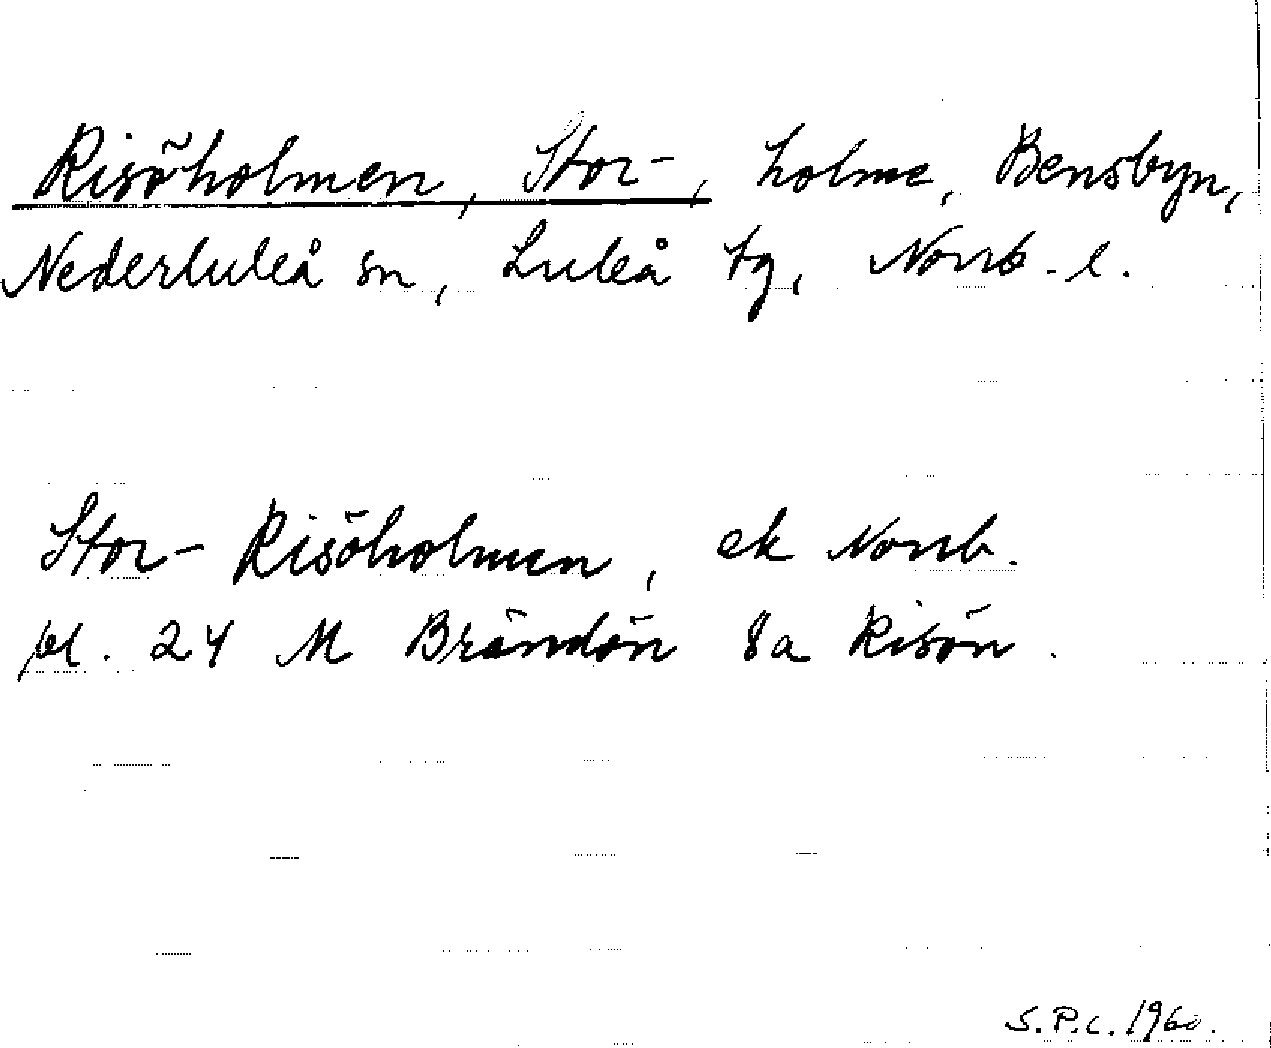 Risöholmen, Stor-, holme, Bensbyn,
Nederluleå sn, Luleå tg, Norrb. l.
Stor-Risöholmen, ek Norrb.
bl. 24 M Brändön 8a Risön.
S.P.C. 1960.